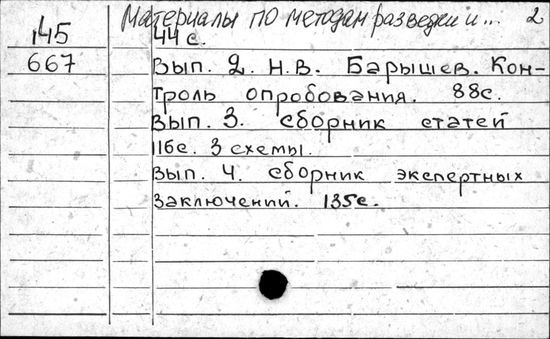 Материалы по методам разведки и... 2
145
44 с.
667
Вып. 2. Н.В. Барышев. Кон-
троль опробования. 88с.
Вып. 3. сборник статей
116с. 3 схемы.
Вып. 4. сборник экспертных
заключений. 135с.